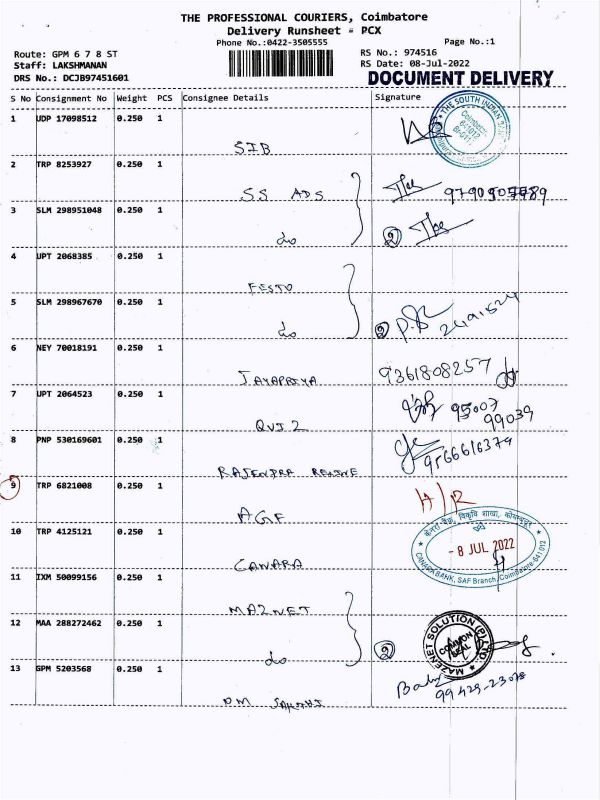 THE PROFESSIONAL COURIERS, Coimbatore
Delivery Runsheet - PCX
Phone No.:0422-3505555
Page No.:1
Route: GPM 6 7 8 ST
RS No.: 974516
Staff: LAKSHMANAN
RS Date: 08-Jul-2022
DRS No.: DCJB97451601
DOCUMENT DELIVERY
S No Consignment No Weight PCS Consignee Details Signature
1 UDP 17098512 0.250 1
THE SOUTH INDIAN
Coimbatore
SIB
2 TRP 8253927 0.250 1
SS ADS
3 SLM 298951048 0.250 1
do
2
4 UPT 2068385 0.250 1
FESTO
5 SLM 298967670 0.250 1
do
2
6 NEY 70018191 0.250 1
JAYAPRIYA 9361808257
7 UPT 2064523 0.250 1
95007
99039
8 PNP 530169601 0.250 1
9566616374
RAJENDRA
9 TRP 6821008 0.250 1
A/R
AGF
10 TRP 4125121 0.250 1
केनरा बैंक, विकृषि शाखा, कोयम्बत्तूर
- 8 JUL 2022
CANARA BANK, SAF Branch, Coimbatore 641012
CANARA
11 IXM 50099156 0.250 1
MAZNET
12 MAA 288272462 0.250 1
MAZENET SOLUTION (P) LTD.
COMMON SEAL
do
2
13 GPM 5203568 0.250 1
99429-23078